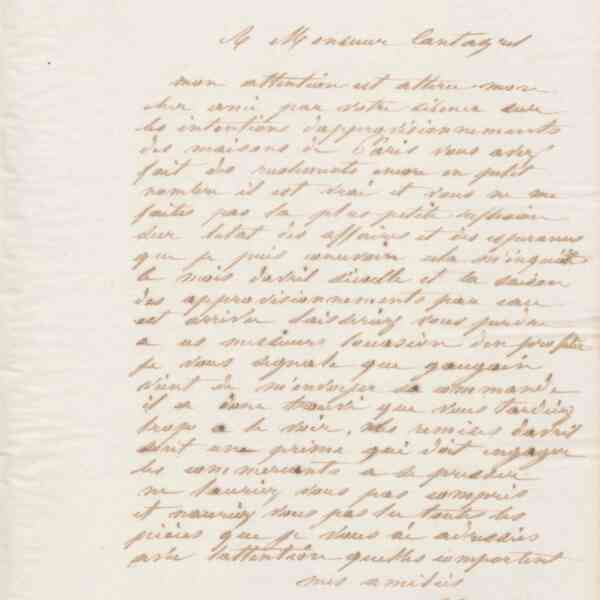 A Monsieur Cantagrel
mon attention est attirée mon
cher ami par votre silence sur
les intentions d'approvisionnements
des maisons de Paris vous avez
fait des recelements encore en petit
nombre il est vrai et vous ne me
faites pas la plus petite reflexion
sur letat des affaires et des esperances
que je puis concevoir cela m'inquiète
le mois davril s'écoulle et la saison
des approvisionnements par eau
est arrivée laisseriez vous perdre
a ces messieurs loccasion den profiter
je vous signale que gaugain
vient de m'envoyer sa commande
il a donc trouvé que vous tardiez
trop a le voir, les remises davril
sont une prime qui doit engager
les commercants a se presser
ne lauriez vous pas compris
et nauriez vous pas lu toutes les
pièces que je vous ai adressées
avec lattention quelles comportent
mes amitiés